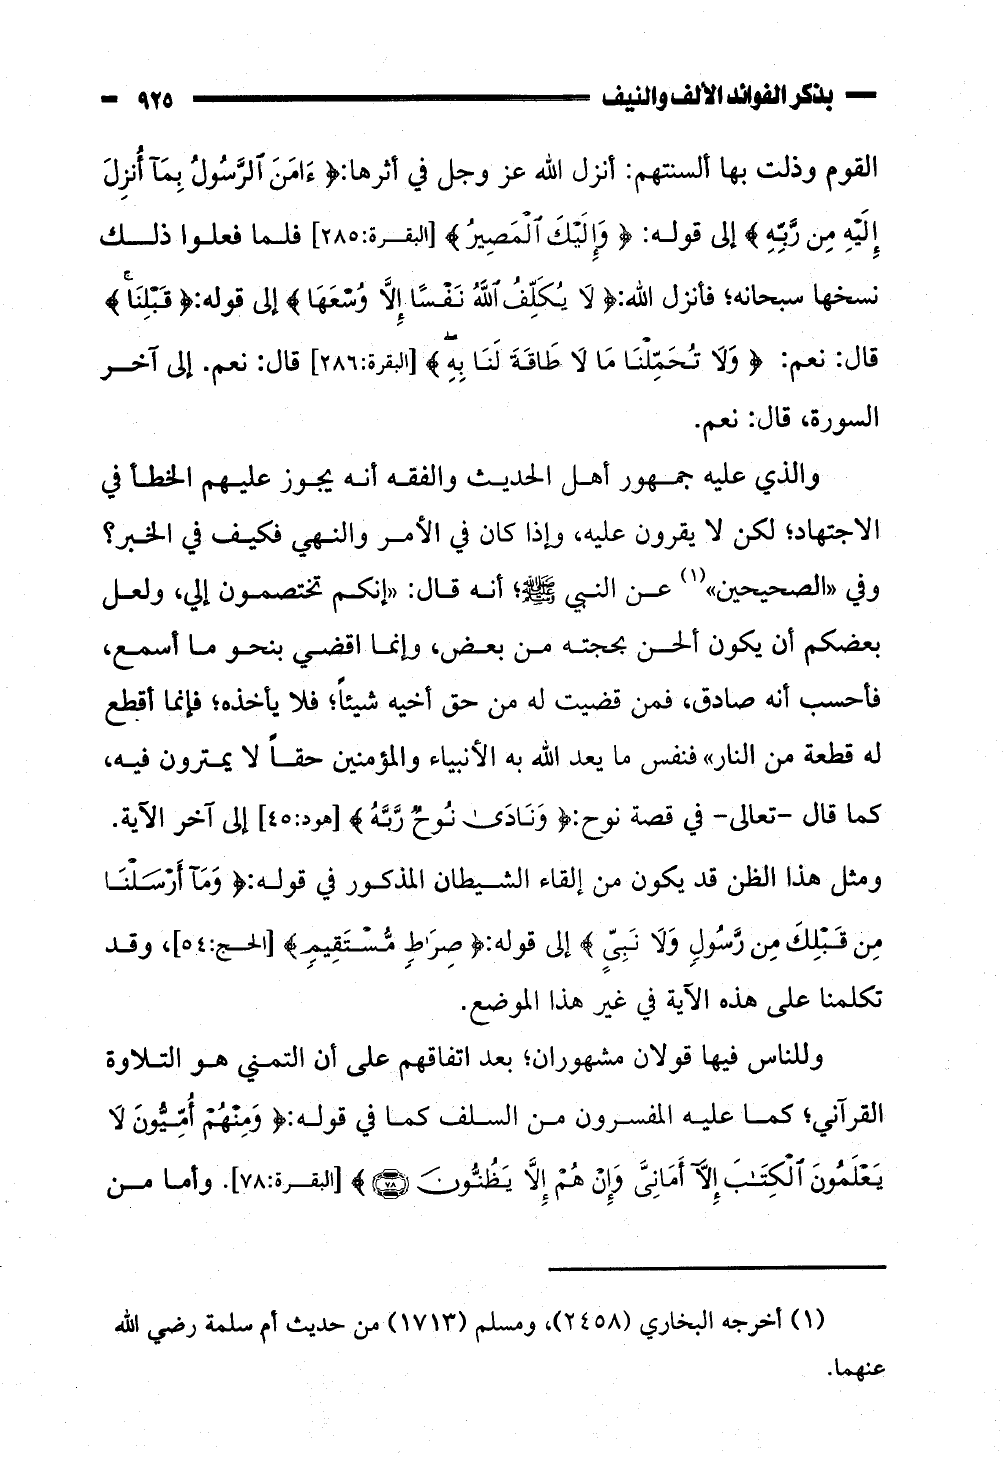 بذكر الفوائد الألف والنيف ٩٢٥
القوم وذلت بها ألسنتهم: أنزل الله عز وجل في أثرها:﴿ ءَامَنَ ٱلرَّسُولُ بِمَآ أُنزِلَ
إِلَيْهِ مِن رَّبِّهِ ﴾ إلى قوله: ﴿ وَإِلَيْكَ ٱلْمَصِيرُ ﴾ [البقرة:٢٨٥] فلما فعلوا ذلك
نسخها سبحانه؛ فأنزل الله:﴿ لَا يُكَلِّفُ ٱللَّهُ نَفْسًا إِلَّا وُسْعَهَا ﴾ إلى قوله:﴿ قَبْلِنَا ۚ ﴾
قال: نعم: ﴿ وَلَا تُحَمِّلْنَا مَا لَا طَاقَةَ لَنَا بِهِۦ ۖ ﴾ [البقرة:٢٨٦] قال: نعم. إلى آخر
السورة، قال: نعم.
والذي عليه جمهور أهل الحديث والفقه أنه يجوز عليهم الخطأ في
الاجتهاد؛ لكن لا يقرون عليه، وإذا كان في الأمر والنهي فكيف في الخبر؟
وفي «الصحيحين»(١) عن النبي ﷺ؛ أنه قال: «إنكم تختصمون إلي، ولعل
بعضكم أن يكون ألحن بحجته من بعض، وإنما اقضي بنحو ما أسمع،
فأحسب أنه صادق، فمن قضيت له من حق أخيه شيئاً؛ فلا يأخذه؛ فإنما أقطع
له قطعة من النار» فنفس ما يعد الله به الأنبياء والمؤمنين حقاً لا يمترون فيه،
كما قال -تعالى- في قصة نوح:﴿ وَنَادَىٰ نُوحٌ رَّبَّهُ ﴾ [هود:٤٥] إلى آخر الآية.
ومثل هذا الظن قد يكون من إلقاء الشيطان المذكور في قوله:﴿ وَمَآ أَرْسَلْنَا
مِن قَبْلِكَ مِن رَّسُولٍ وَلَا نَبِىٍّ ﴾ إلى قوله:﴿ صِرَٰطٍ مُّسْتَقِيمٍ ﴾ [الحج:٥٤]، وقد
تكلمنا على هذه الآية في غير هذا الموضع.
وللناس فيها قولان مشهوران؛ بعد اتفاقهم على أن التمني هو التلاوة
القرآني؛ كما عليه المفسرون من السلف كما في قوله:﴿ وَمِنْهُمْ أُمِّيُّونَ لَا
يَعْلَمُونَ ٱلْكِتَٰبَ إِلَّآ أَمَانِىَّ وَإِنْ هُمْ إِلَّا يَظُنُّونَ ٧٨ ﴾ [البقرة:٧٨]. وأما من
(١) أخرجه البخاري (٢٤٥٨)، ومسلم (١٧١٣) من حديث أم سلمة رضي الله
عنهما.